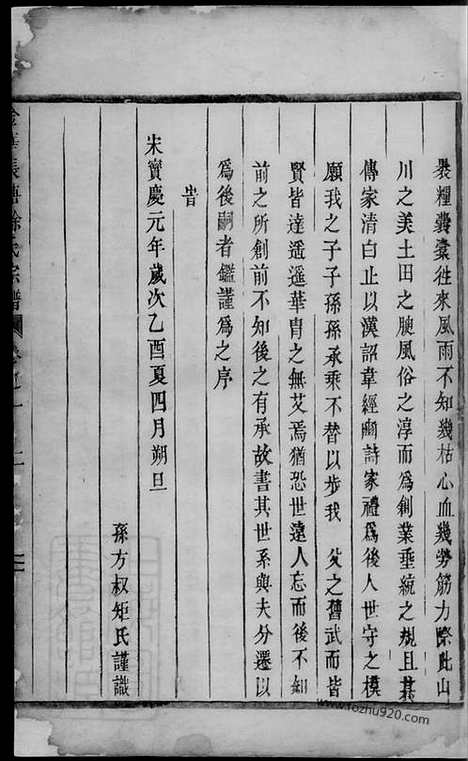 裹糧囊橐往來風雨不知幾枯心血幾勞筋力際此山
川之美土田之腴風俗之淳而為創業垂統之規且其
傳家清白止以漢詔韋經豳詩家禮為後人世守之模
願我之子子孫孫承乘不替以步我 父之舊武而皆
賢皆達遥遥華冑之無艾焉猶恐世遠人忘而後不知
前之所創前不知後之有承故書其世系與夫分遷以
為後嗣者鑑謹為之序
旹
宋寶慶元年歲次乙酉夏四月朔旦
孫方权矩氏謹識
徐氏宗譜
www.fozhu920.com